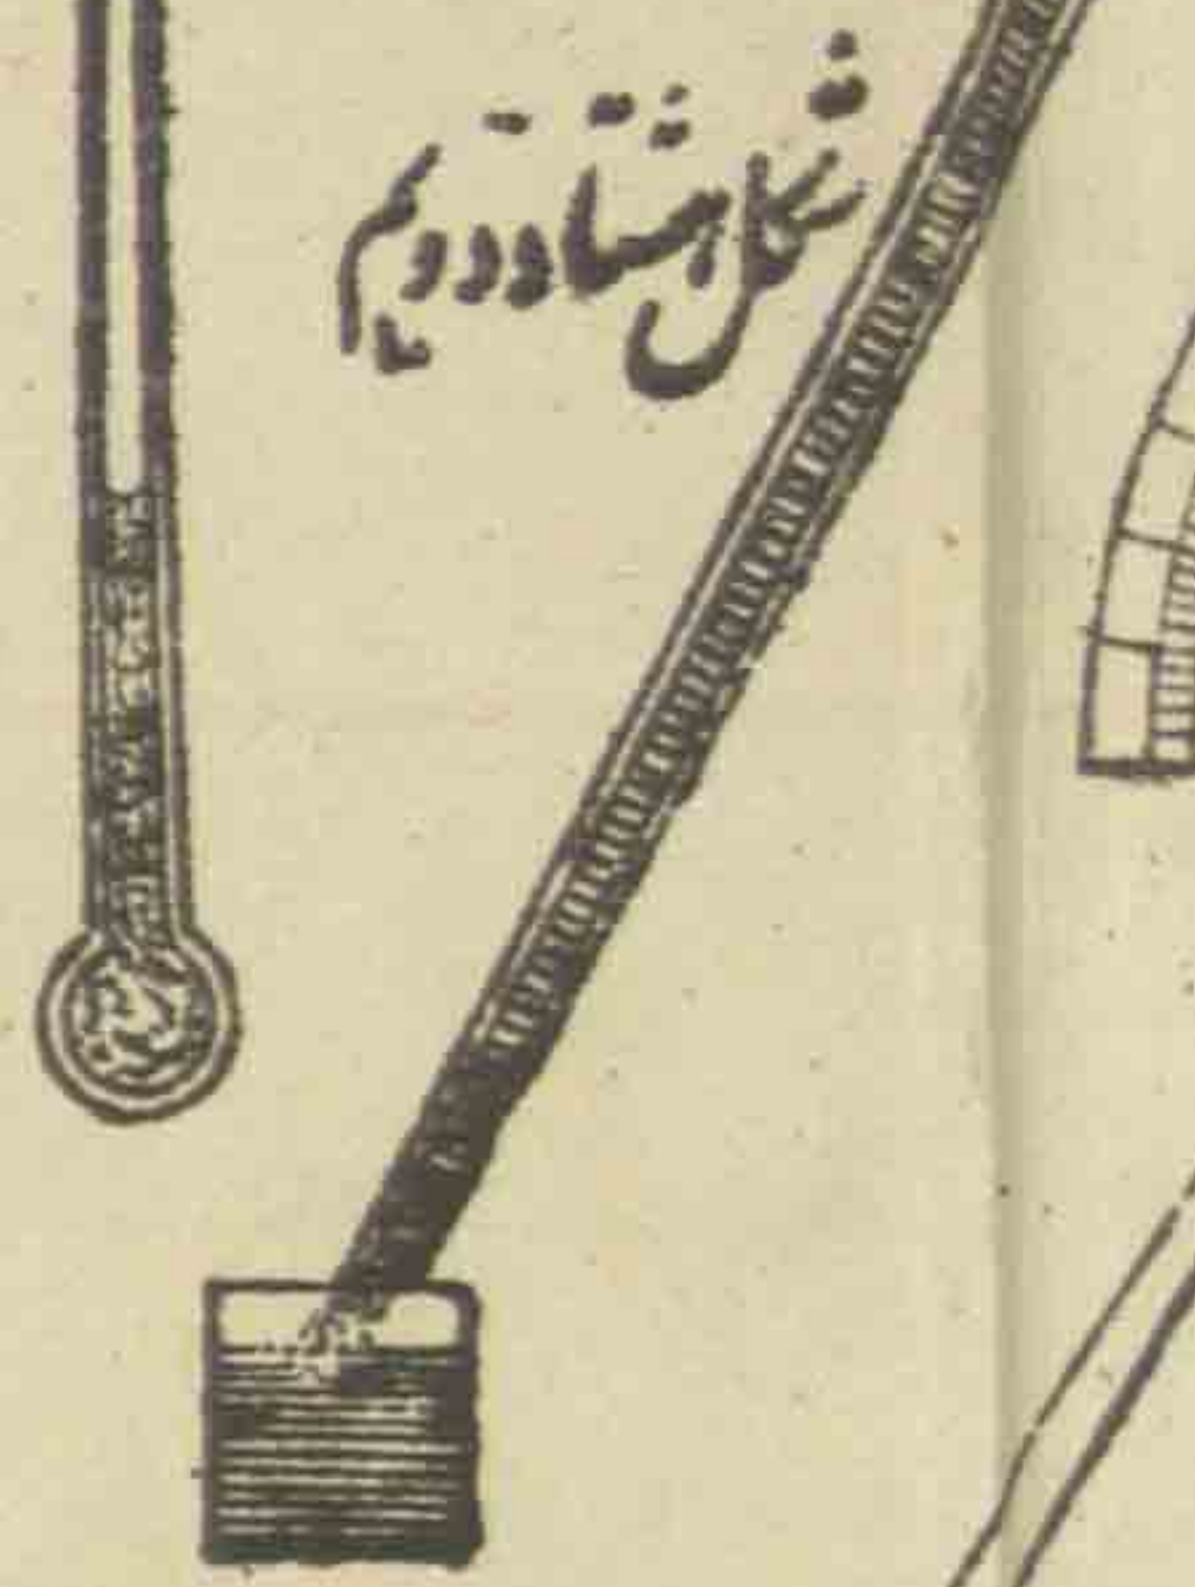 شکل هشتاد و دویم